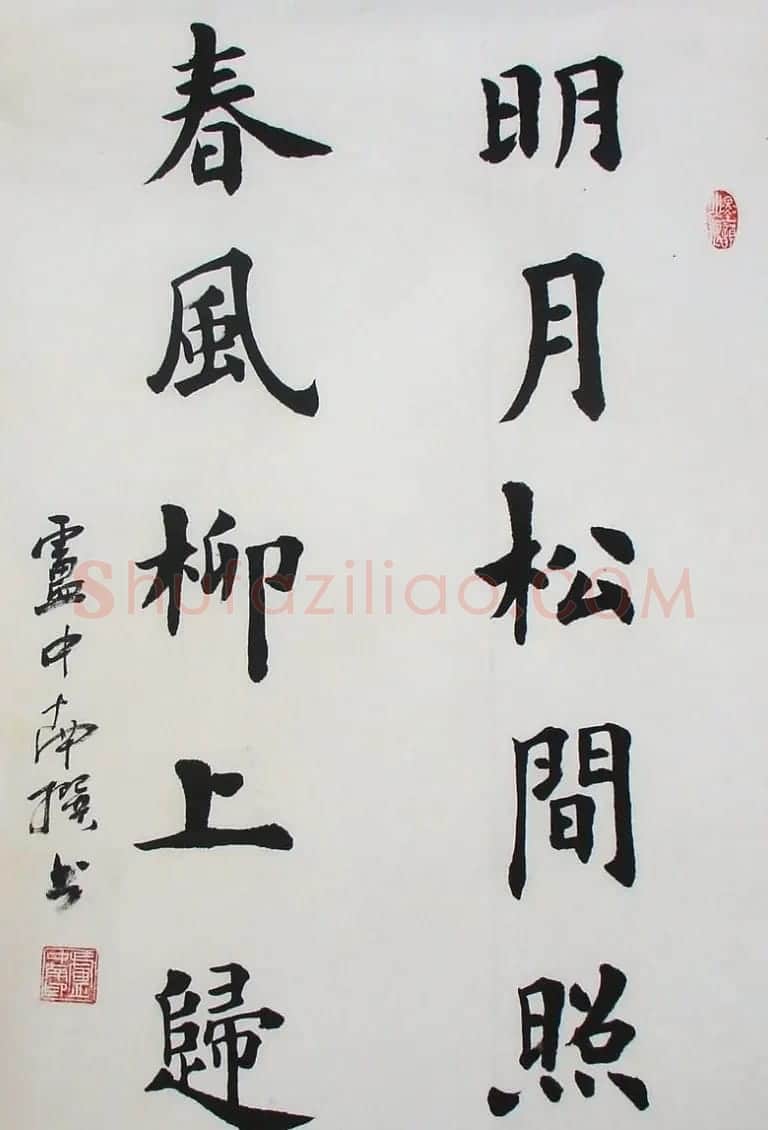 明月松間照
春風柳上歸
盧中南撰书
Shufaziliao.COM